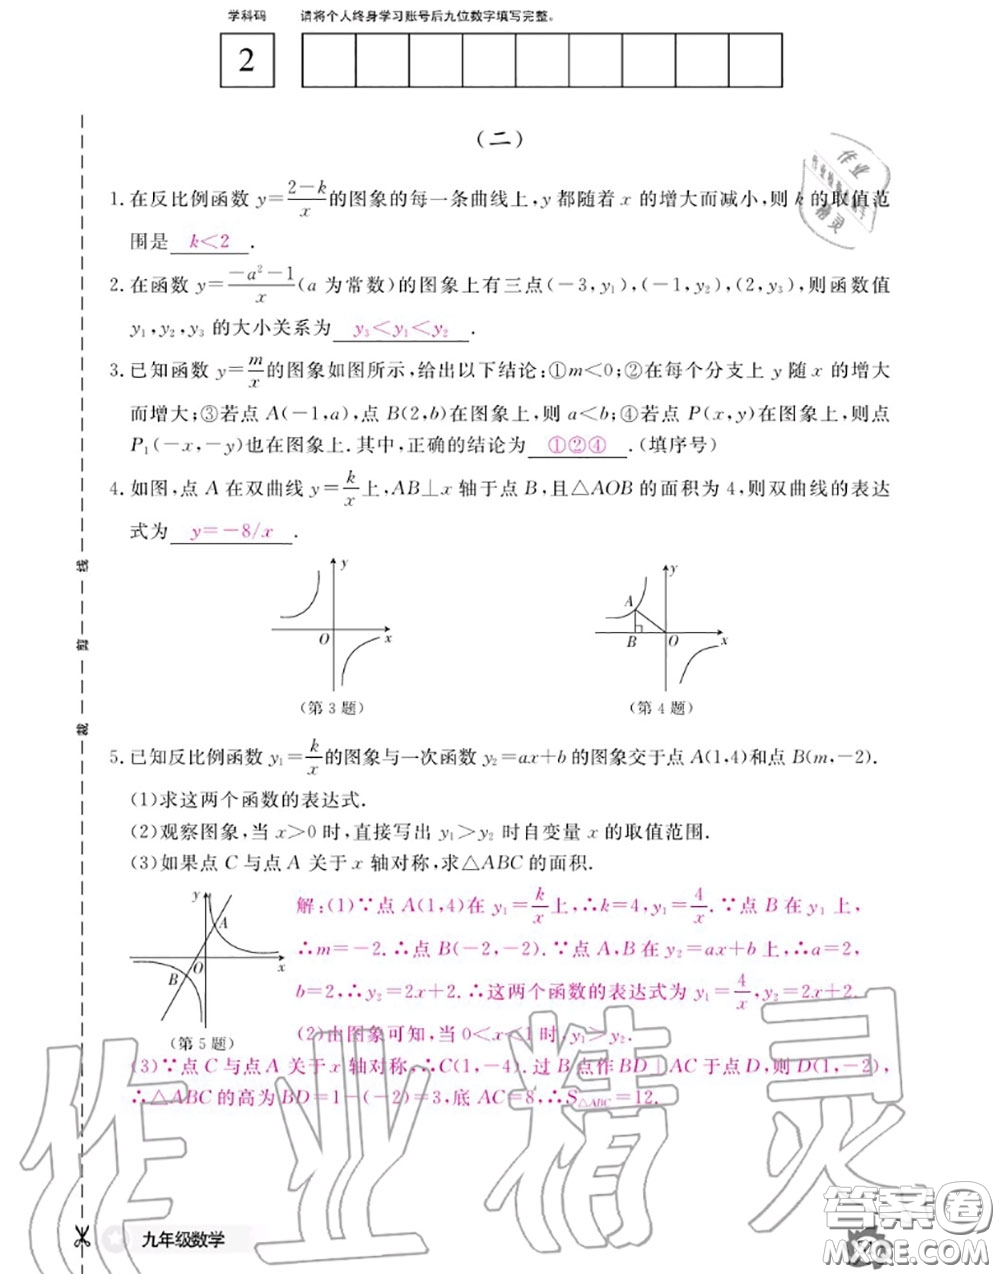 学科码 请将个人终身学习账号后九位数字填写完整。
2
(二)
1. 在反比例函数 y=(2-k)/x 的图象的每一条曲线上,y 都随着 x 的增大而减小,则 k 的取值范
围是 k<2 .
2. 在函数 y=(-a²-1)/x (a 为常数)的图象上有三点(-3,y₁),(-1,y₂),(2,y₃),则函数值
y₁,y₂,y₃ 的大小关系为 y₃<y₁<y₂ .
3. 已知函数 y=m/x 的图象如图所示,给出以下结论:①m<0;②在每个分支上 y 随 x 的增大
而增大;③若点 A(-1,a),点 B(2,b)在图象上,则 a<b;④若点 P(x,y)在图象上,则点
P₁(-x,-y)也在图象上.其中,正确的结论为 ①②④ .(填序号)
4. 如图,点 A 在双曲线 y=k/x 上,AB⊥x 轴于点 B,且△AOB 的面积为 4,则双曲线的表达
式为 y=-8/x .
y
O x
(第 3 题)
y
A
B O x
(第 4 题)
5. 已知反比例函数 y₁=k/x 的图象与一次函数 y₂=ax+b 的图象交于点 A(1,4)和点 B(m,-2).
(1)求这两个函数的表达式.
(2)观察图象,当 x>0 时,直接写出 y₁>y₂ 时自变量 x 的取值范围.
(3)如果点 C 与点 A 关于 x 轴对称,求△ABC 的面积.
y
A
O x
B
(第 5 题)
解:(1)∵点 A(1,4)在 y₁=k/x 上,∴k=4,y₁=4/x.∵点 B 在 y₁ 上,
∴m=-2.∴点 B(-2,-2).∵点 A,B 在 y₂=ax+b 上,∴a=2,
b=2,∴y₂=2x+2.∴这两个函数的表达式为 y₁=4/x,y₂=2x+2.
(2)由图象可知,当 0<x<1 时,y₁>y₂.
(3)∵点 C 与点 A 关于 x 轴对称,∴C(1,-4).过 B 点作 BD⊥AC 于点 D,则 D(1,-2),
∴△ABC 的高为 BD=1-(-2)=3,底 AC=8,∴S△ABC=12.
线
剪
裁
九年级数学
作业精灵
答案卷
MXQE.COM